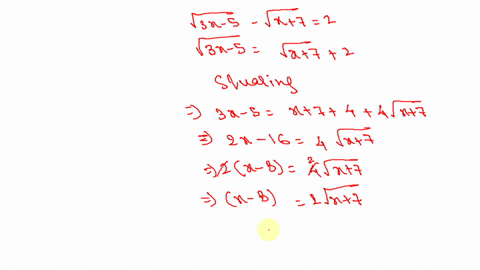 √3x-5 - √x+7 = 2
√3x-5 = √x+7 + 2
Squaring
=) 3x-5 = x+7+4+4√x+7
=) 2x-16 = 4 √x+7
=) 2(x-8) = 4 2 √x+7
=) (x-8) = 2√x+7